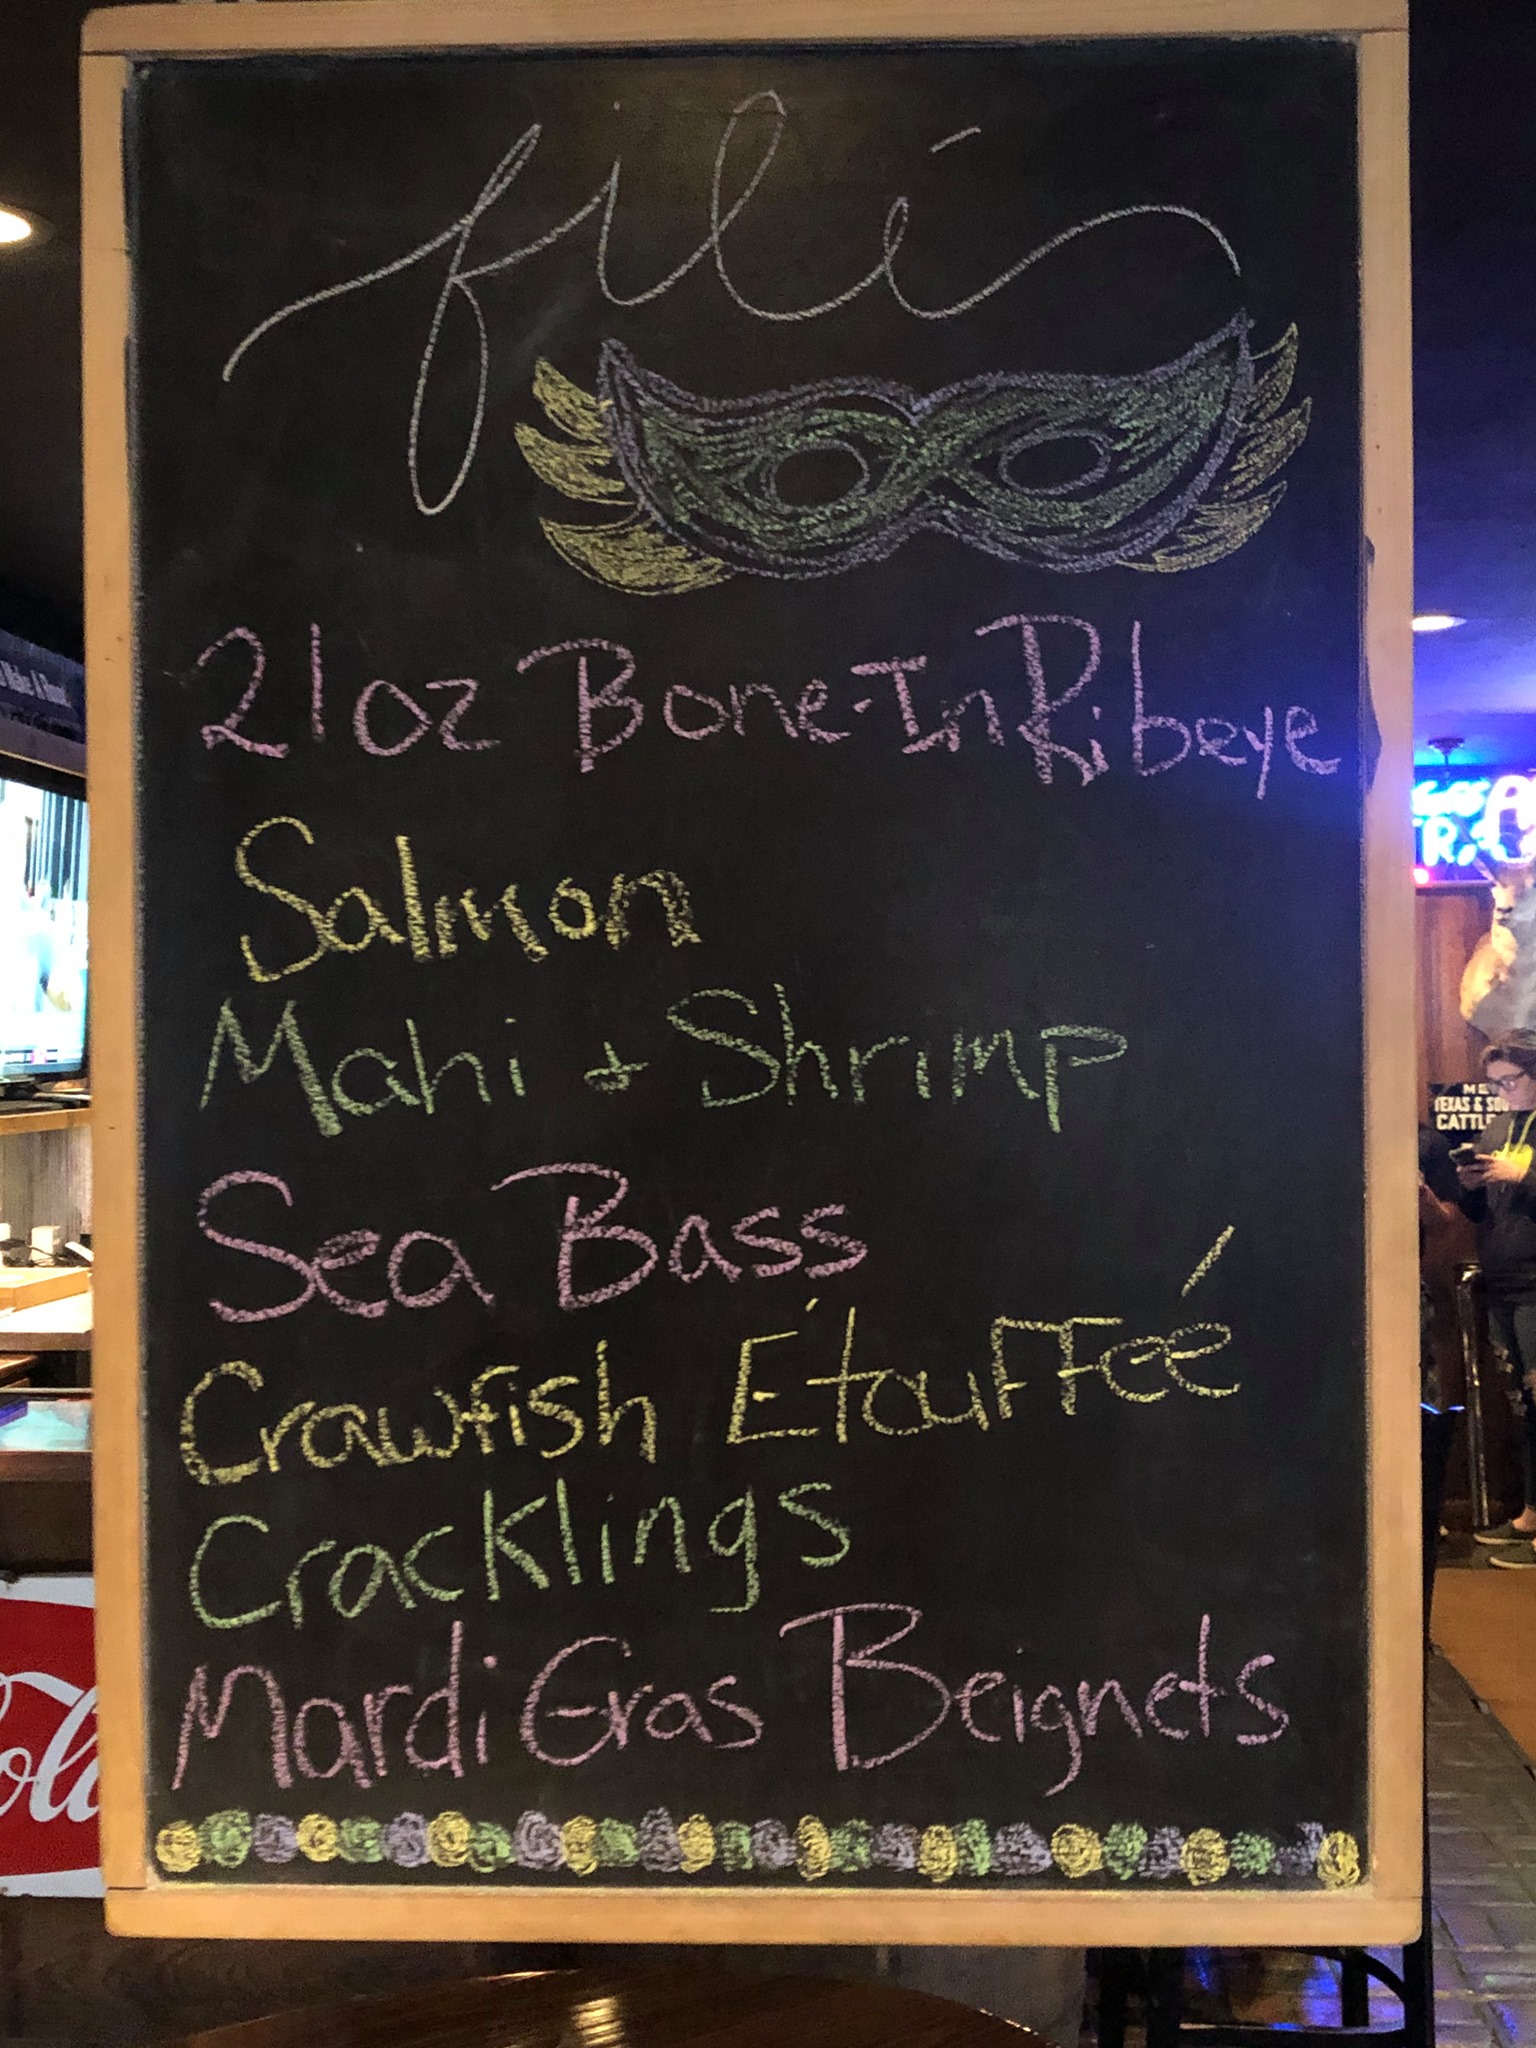 filé
21oz Bone-In Ribeye
Salmon
Mahi + Shrimp
Sea Bass
Crawfish Étouffeé
Cracklings
Mardi Gras Beignets
TEXAS &
CATTLE